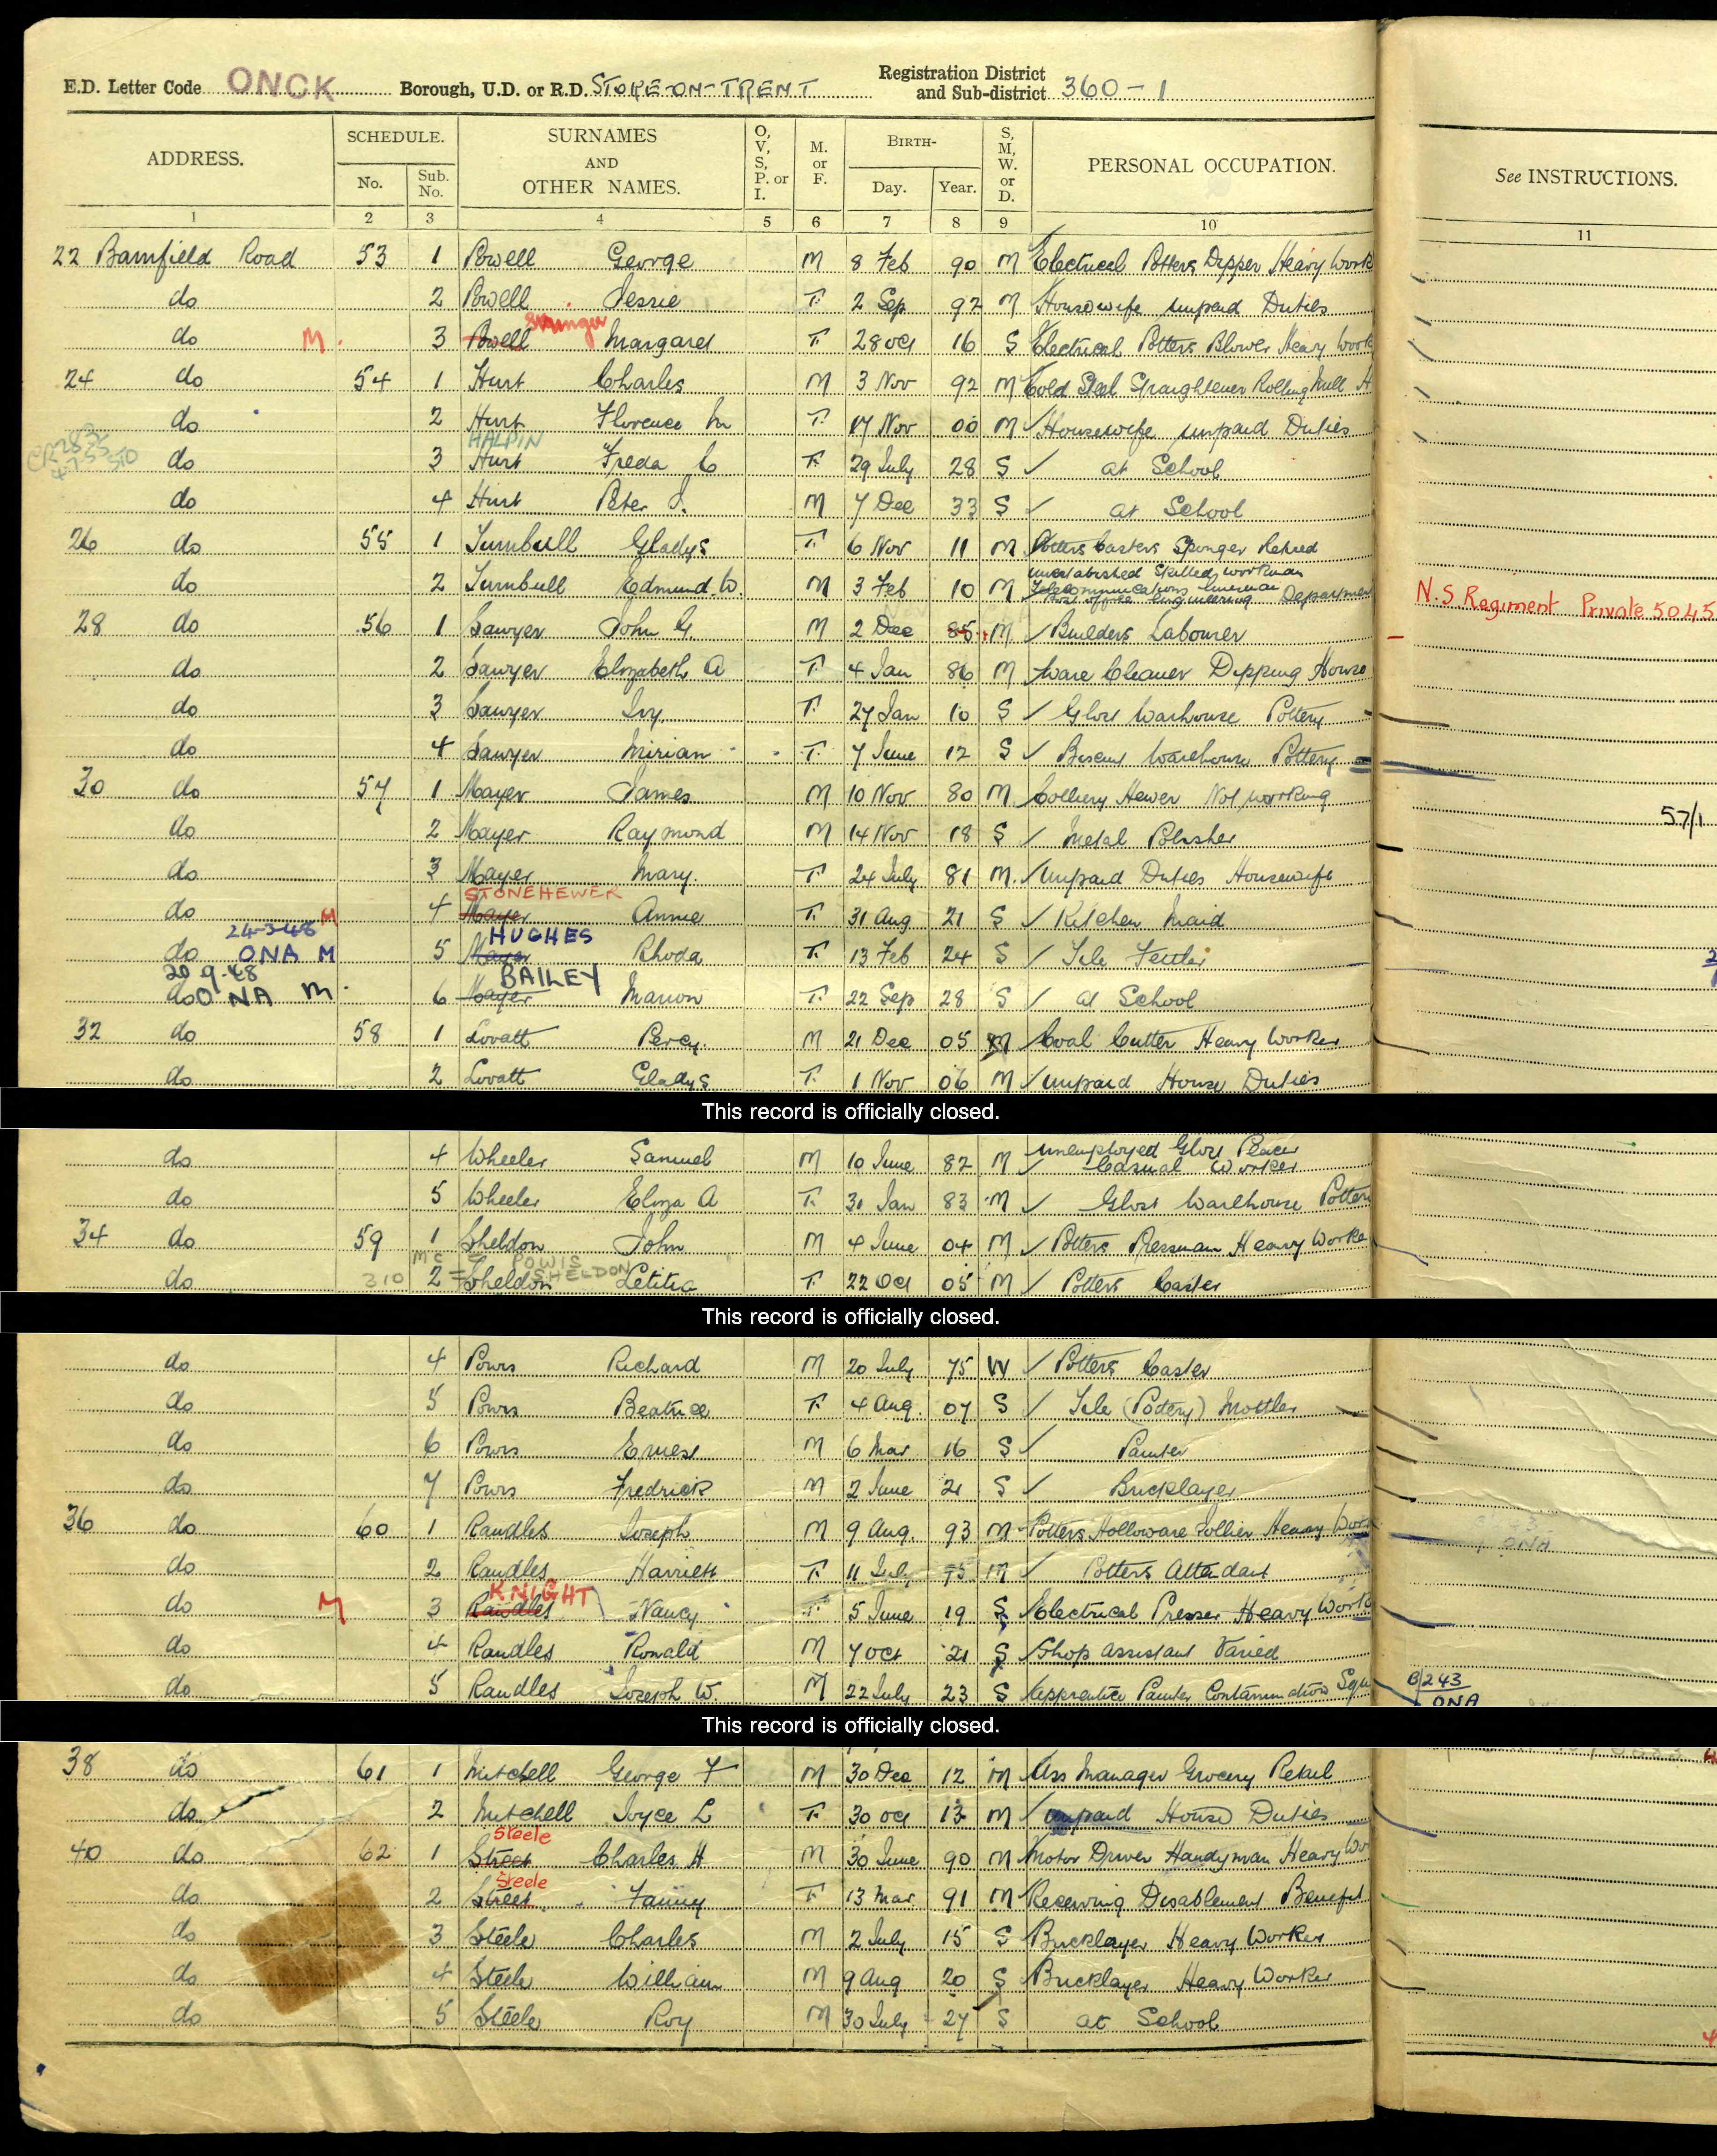 E.D. Letter Code ONCK Borough, U.D. or R.D. STOKE-ON-TRENT Registration District and Sub-district 360-1
ADDRESS. SCHEDULE. No. Sub. No. SURNAMES AND OTHER NAMES. O, V, S, P. or I. M. or F. BIRTH- Day. Year. S, M, W. or D. PERSONAL OCCUPATION. See INSTRUCTIONS.
1 2 3 4 5 6 7 8 9 10 11
22 Bamfield Road 53 1 Powell George M 8 Feb 90 M Electrical Potters Dipper Heavy Work
do 2 Powell Jessie F 2 Sep 92 M Housewife unpaid Duties
Stringer
do M 3 Powell Margaret F 28 Oct 16 S Electrical Potters Blower Heavy Work
24 do 54 1 Hurt Charles M 3 Nov 92 M Cold Steel Straightener Rolling Mill H
do 2 Hurt Florence M F 17 Nov 00 M Housewife unpaid Duties
HALPIN
do 3 Hurt Freda C F 29 July 28 S at School
do 4 Hurt Peter J. M 7 Dec 33 S at School
26 do 55 1 Turnbull Gladys F 6 Nov 11 M Potters Casters Sponger Retired
unestablished Skilled workman
do 2 Turnbull Edmund W. M 3 Feb 10 M Telecommunications lineman Post office Engineering Departmen N.S Regiment Private 5045
28 do 56 1 Sawyer John G. M 2 Dec 85 M Builders Labourer
do 2 Sawyer Elizabeth A F 4 Jan 86 M Ware Cleaner Dipping House
do 3 Sawyer Ivy F 27 Jan 10 S Glost Warhouse Pottery
do 4 Sawyer Mirian F 7 June 12 S Biscuit Warehouse Pottery
30 do 57 1 Mayer James M 10 Nov 80 M Colliery Hewer Not working
57/1
do 2 Mayer Raymond M 14 Nov 18 S Metal Polisher
do 3 Mayer Mary F 24 July 81 M Unpaid Duties Housewife
STONEHEWER
do M 4 Mayer Annie F 31 Aug 21 S Kitchen Maid
24-3-48 HUGHES
do ONA M 5 Mayer Rhoda F 13 Feb 24 S Tile Fettler
20.9.48 BAILEY
do ONA M 6 Mayer Marion F 22 Sep 28 S at School
32 do 58 1 Lovatt Percy M 21 Dec 05 M Coal Cutter Heavy Worker
do 2 Lovatt Gladys F 1 Nov 06 M Unpaid House Duties
This record is officially closed.
unemployed Glost Placer
do 4 Wheeler Samuel M 10 June 82 M Casual Worker
do 5 Wheeler Eliza A F 31 Jan 83 M Glost Warehouse Potter
34 do 59 1 Sheldon John M 4 June 04 M Potters Pressman Heavy Worke
Mc POWIS SHELDON
do 310 2 Sheldon Letitia F 22 Oct 05 M Potters Caster
This record is officially closed.
do 4 Powis Richard M 20 July 75 W Potters Caster
do 5 Powis Beatrice F 4 Aug. 07 S Tile (Pottery) Mottler
do 6 Powis Ernest M 6 Mar 16 S Painter
do 7 Powis Fredrick M 2 June 21 S Bricklayer
36 do 60 1 Randles Joseph M 9 Aug. 93 M Potters Holloware Jollier Heavy Work
ONA
do 2 Randles Harriett F 11 July 95 M Potters Attendant
KNIGHT
do M 3 Randles Nancy F 5 June 19 S Electrical Presser Heavy Work
do 4 Randles Ronald M 7 Oct 21 S Shop assistant Varied
do 5 Randles Joseph W. M 22 July 23 S Apprentice Painter Contamination Squ B/243 ONA
This record is officially closed.
38 do 61 1 Mitchell George F M 30 Dec 12 M Ass Manager Grocery Retail
do 2 Mitchell Joyce L F 30 Oct 13 M unpaid House Duties
Steele
40 do 62 1 Street Charles H M 30 June 90 M Motor Driver Handyman Heavy Wo
Steele
do 2 Street Fanny F 13 Mar 91 M Receiving Disablement Benefit
do 3 Steele Charles M 2 July 15 S Bricklayer Heavy Worker
do 4 Steele William M 9 Aug 20 S Bricklayer Heavy Worker
do 5 Steele Roy M 30 July 27 S at School